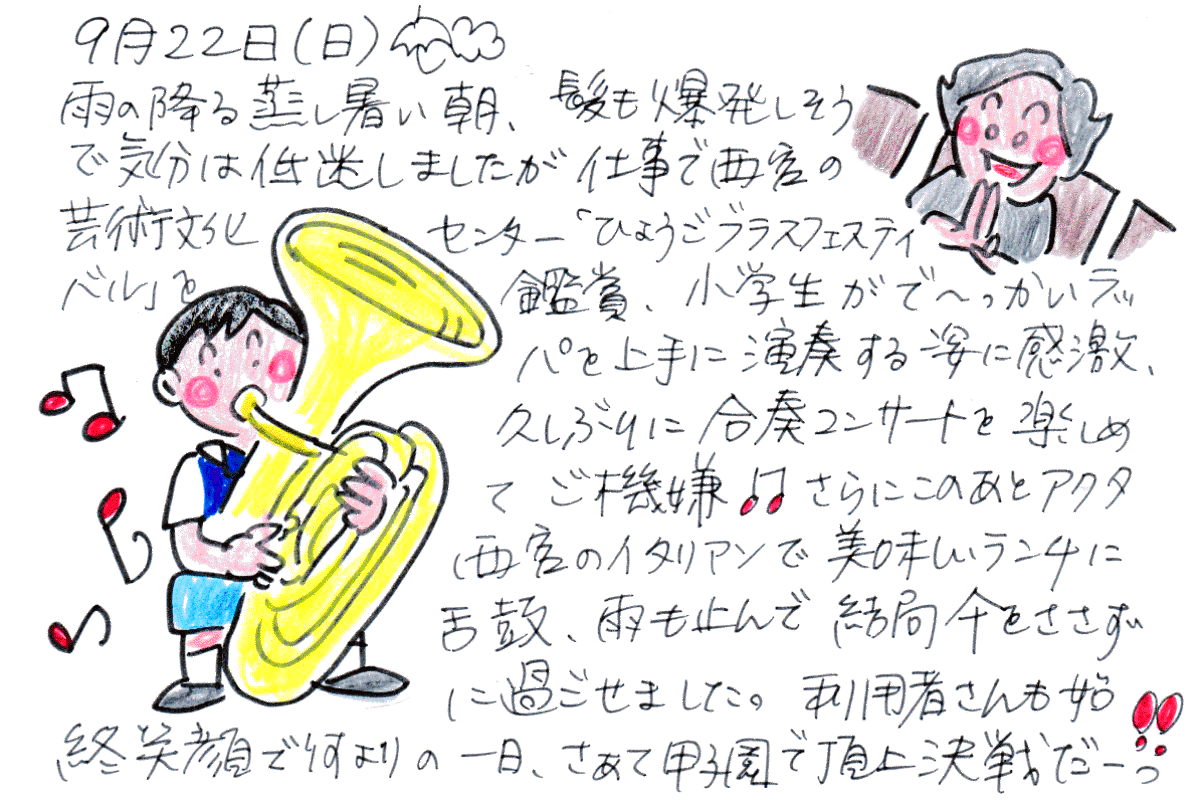 9月22日(日)
雨の降る蒸し暑い朝、髪も爆発しそう
で気分は低迷しましたが仕事で西宮の
芸術文化センター「ひょうごブラスフェスティ
バル」を鑑賞、小学生がでへっかいラッ
パを上手に演奏する姿に感激、
久しぶりに合奏コンサートを楽しめ
てご機嫌さらにこのあとアクタ
西宮のイタリアンで美味しいランチに
舌鼓、雨も止んで結局傘をささず
に過ごせました。利用者さんも始
終笑顔で何よりの一日、さあて甲子園で頂上決戦だーっ!!